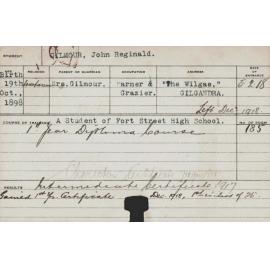 STUDENT GILMOUR, John Reginald.
Birth RELIGION PARENT OR GUARDIAN OCCUPATION ADDRESS DATE OF ENTRANCE
19th Mrs. Gilmour. Farmer & "The Wilgas," 5.2.18
Oct., Grazier. GILGANDRA.
1898 Left Dec. 1918
COURSE OF TRAINING A Student of Fort Street High School. NO.
1st Year Diploma Course 185
RESULTS Intermediate Certificate 1917
Gained 1st Yr. Certificate Dec. 1918,